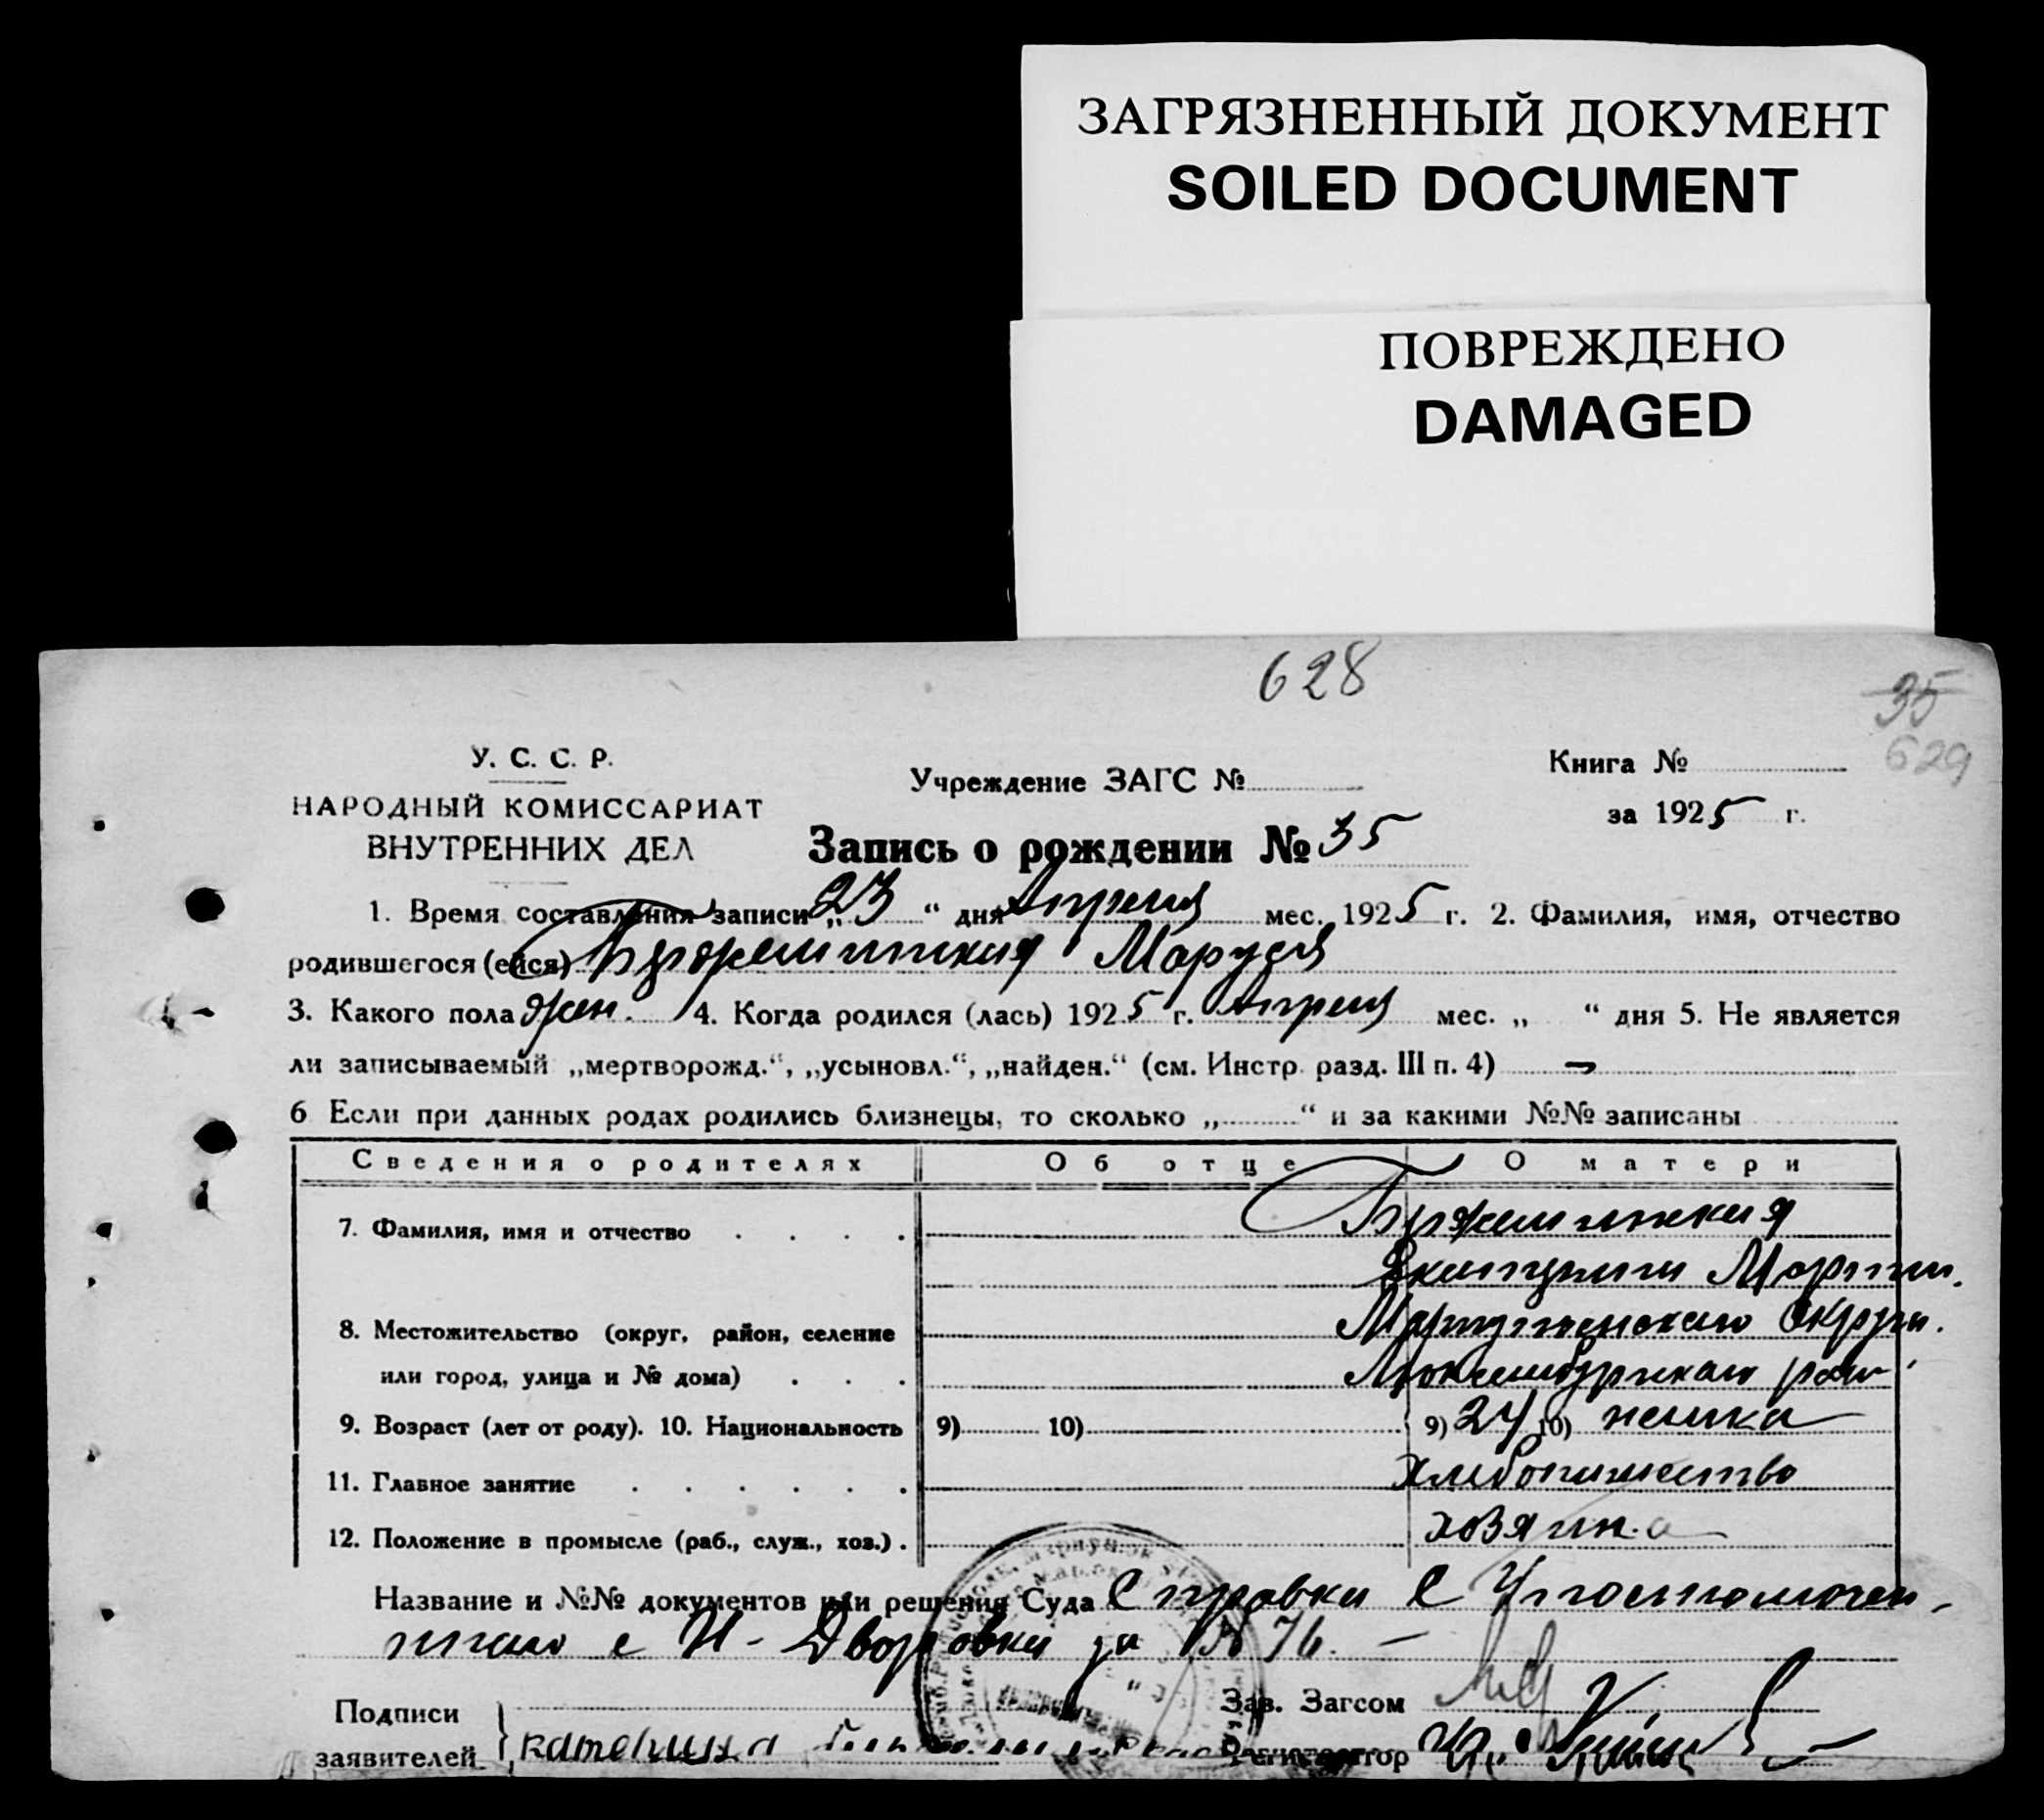 ЗАГРЯЗНЕННЫЙ ДОКУМЕНТ
SOILED DOCUMENT
ПОВРЕЖДЕНО
DAMAGED
628
35
629
У. С. С. Р.
НАРОДНЫЙ КОМИССАРИАТ
ВНУТРЕННИХ ДЕЛ
Учреждение ЗАГС №
Книга №
за 1925 г.
Запись о рождении № 35
1. Время составления записи „23“ дня Апреля мес. 1925 г. 2. Фамилия, имя, отчество
родившегося (ейся) Маруся
3. Какого пола жен. 4. Когда родился (лась) 1925 г. Апреля мес. „ “ дня 5. Не является
ли записываемый „мертворожд.“, „усыновл.“, „найден.“ (см. Инстр. разд. III п. 4) —
6 Если при данных родах родились близнецы, то сколько „ “ и за какими №№ записаны
Сведения о родителях Об отце О матери
7. Фамилия, имя и отчество
8. Местожительство (округ, район, селение
Мариупольского Округа.
или город, улица и № дома) Люксембургского рай.
9. Возраст (лет от роду). 10. Национальность 9) 10) 9) 24 10) немка
11. Главное занятие Хлебопашество
12. Положение в промысле (раб., служ., хоз.) хозяйка
Название и №№ документов или решения Суда Справка С Уполномочен-
ного с Н-Дворовка за № 76. —
Подписи
заявителей
катерина
Зав. Загсом
Регистратор